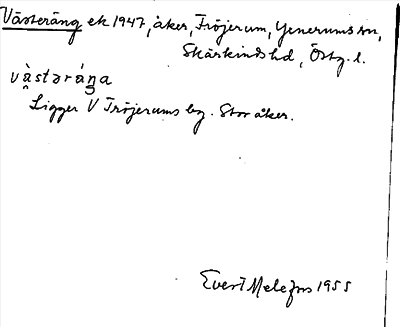 Västeräng ek 1947, åker, Fröjerum, Yxnerums sn,
Skärkinds hd, Östg. l.
västəráŋa
Ligger V Fröjerums by. Stor åker.
Evert Melefors 1955